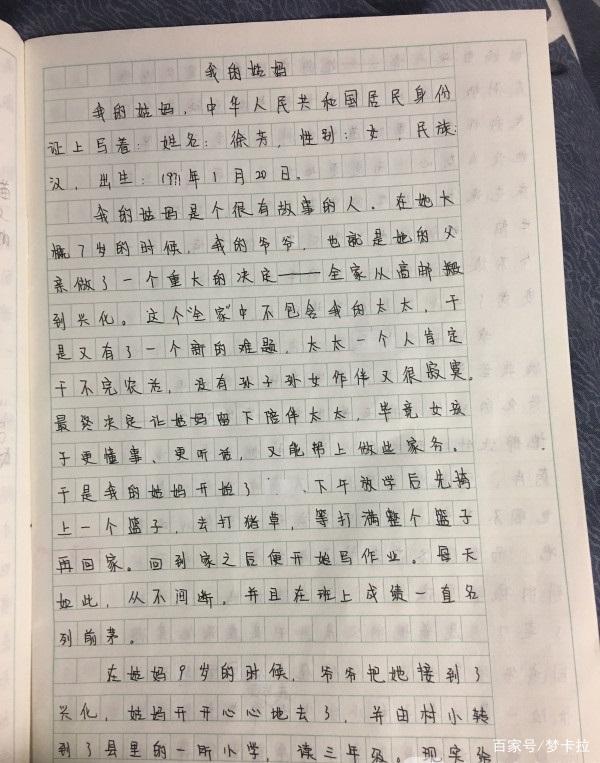 我的姑妈
我的姑妈，中华人民共和国居民身份
证上写着：姓名：徐芳，性别：女，民族：
汉，出生：1971年1月20日。
我的姑妈是个很有故事的人。在她大
概7岁的时候，我的爷爷，也就是她的父
亲做了一个重大的决定——全家从高邮搬
到兴化。这个“全家”中不包含我的太太，于
是又有了一个新的难题，太太一个人肯定
干不完农活，没有孙子孙女作伴又很寂寞。
最终决定让姑妈留下陪伴太太，毕竟女孩
子更懂事、更听话，又能帮上做些家务。
于是我的姑妈开始了 下午放学后先骑
上一个篮子，去打猪草，等打满整个篮子
再回家。回到家之后便开始写作业。每天
如此，从不间断，并且在班上成绩一直名
列前茅。
在姑妈9岁的时候，爷爷把她接到了
兴化，姑妈开开心心地去了，并由村小转
到了县里的一所小学，读三年级。现实给
百家号/梦卡拉